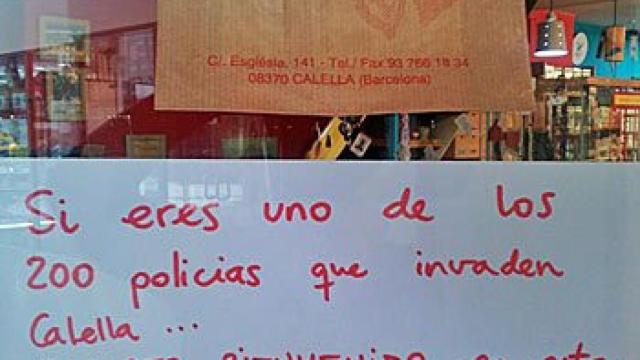 C/. Església, 141 - Tel./ Fax 93 766 18 34
08370 CALELLA (Barcelona)
Si eres uno de los
200 policias que invaden
Calella ...
BIENVENIDO